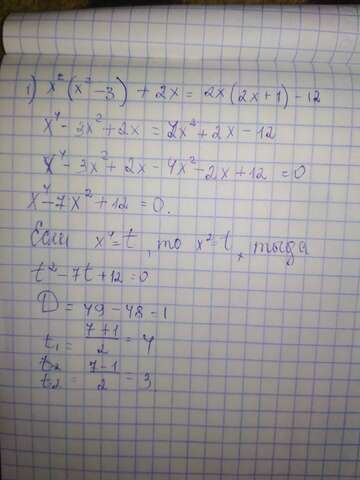 1) x²(x² - 3) + 2x = 2x(2x + 1) - 12
x⁴ - 3x² + 2x = 4x² + 2x - 12
x⁴ - 3x² + 2x - 4x² - 2x + 12 = 0
x⁴ - 7x² + 12 = 0.
Если x⁴ = t, то x² = t, тогда
t² - 7t + 12 = 0
D = 49 - 48 - 1
t₁ = (7+1)/2 = 4
t₂ = (7-1)/2 = 3